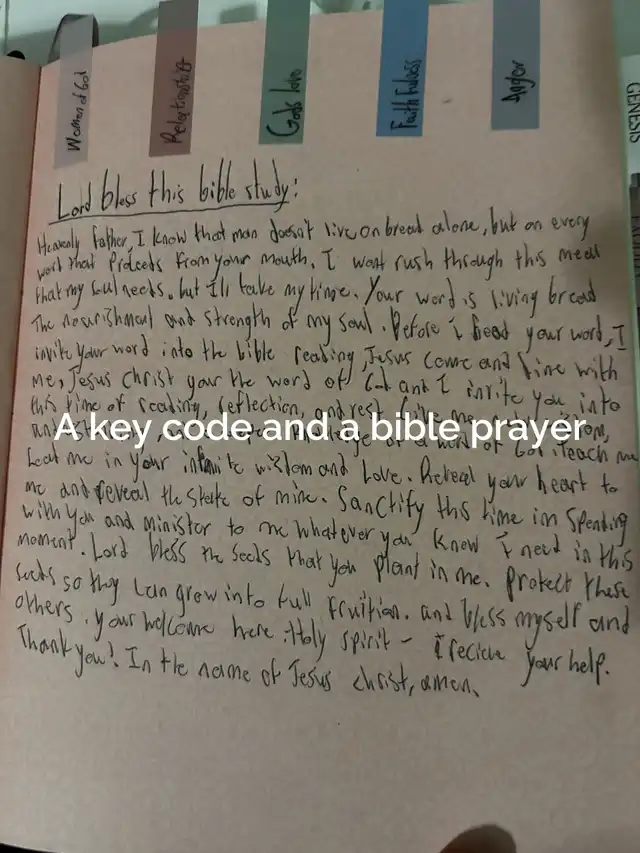 Women of God
Relationships
Gods love
Faithfulness
Anger
GENESIS
Lord bless this bible study:
Heavenly Father, I know that man doesn't live on bread alone, but on every
word that proceeds from your mouth. I want rush through this meal
that my soul needs. but Ill take my time. Your word is living bread
The nourishment and strength of my soul. Before i read your word, I
invite your word into the bible reading, Jesus come and dine with
me, Jesus Christ your the word of God and I invite you into
this time of reading, reflection, and rest. Give me
A key code and a bible prayer
of a word of God. Teach me
Lead me in your infinite wisdom and Love. Reveal your heart to
me and reveal the state of mine. Sanctify this time im spending
with you and minister to me whatever you know i need in this
moment. Lord bless the seeds that you plant in me. Protect these
seeds so they can grow into full fruition. and bless myself and
others. your welcome here Holy spirit - i recieve your help.
Thank you! In the name of Jesus christ, amen.